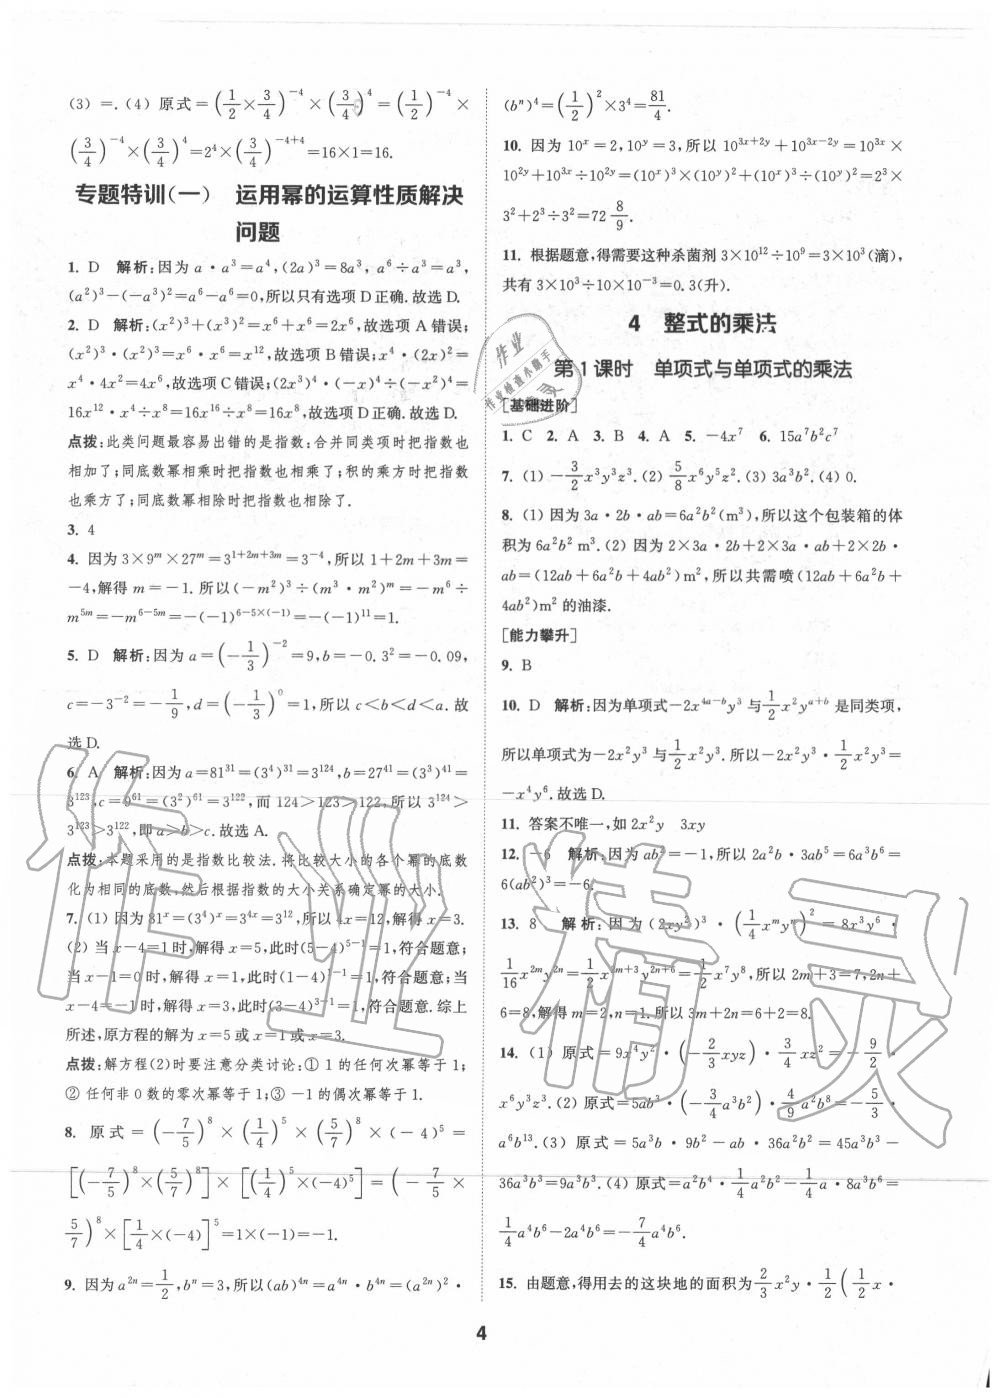 (3) =. (4) 原式=(1/2×3/4)^{-4}×(3/4)^4=(1/2)^{-4}×
(3/4)^{-4}×(3/4)^4=2^4×(3/4)^{-4+4}=16×1=16.
专题特训(一) 运用幂的运算性质解决
问题
1. D 解析:因为 a·a^3=a^4,(2a)^3=8a^3, a^6÷a^3=a^3,
(a^2)^3-(-a^3)^2=a^6-a^6=0,所以只有选项 D 正确.故选 D.
2. D 解析:(x^2)^3+(x^3)^2=x^6+x^6=2x^6,故选项 A 错误;
(x^2)^3·(x^2)^3=x^6·x^6=x^{12},故选项 B 错误;x^4·(2x)^2=
x^4·4x^2=4x^6,故选项 C 错误;(2x^3)^4·(-x)^4÷(-x)^8=
16x^{12}·x^4÷x^8=16x^{16}÷x^8=16x^8,故选项 D 正确.故选 D.
点拨:此类问题最容易出错的是指数:合并同类项时把指数也
相加了;同底数幂相乘时把指数也相乘了;积的乘方时把指数
也乘方了;同底数幂相除时把指数也相除了.
3. 4
4. 因为 3×9^m×27^m=3^{1+2m+3m}=3^{-4},所以 1+2m+3m=
-4,解得 m=-1. 所以(-m^2)^3÷(m^3·m^2)^m=-m^6÷
m^{5m}=-m^{6-5m}=-(-1)^{6-5×(-1)}=-(-1)^{11}=1.
5. D 解析:因为 a=(-1/3)^{-2}=9,b=-0.3^2=-0.09,
c=-3^{-2}=-1/9,d=(-1/3)^0=1,所以 c<b<d<a. 故
选 D.
6. A 解析:因为 a=81^{31}=(3^4)^{31}=3^{124},b=27^{41}=(3^3)^{41}=
3^{123},c=9^{61}=(3^2)^{61}=3^{122},而 124>123>122,所以 3^{124}>
3^{123}>3^{122},即 a>b>c.故选 A.
点拨:本题采用的是指数比较法.将比较大小的各个幂的底数
化为相同的底数,然后根据指数的大小关系确定幂的大小.
7. (1) 因为 81^x=(3^4)^x=3^{4x}=3^{12},所以 4x=12,解得 x=3.
(2) 当 x-4=1 时,解得 x=5,此时(5-4)^{5-1}=1,符合题意;
当 x-1=0 时,解得 x=1,此时(1-4)^{1-1}=1,符合题意;当
x-4=-1 时,解得 x=3,此时(3-4)^{3-1}=1,符合题意.综上
所述,原方程的解为 x=5 或 x=1 或 x=3.
点拨:解方程(2)时要注意分类讨论:① 1 的任何次幂等于 1;
② 任何非 0 数的零次幂等于 1;③ -1 的偶次幂等于 1.
8. 原式=(-7/5)^8×(1/4)^5×(5/7)^8×(-4)^5=
[(-7/5)^8×(5/7)^8]×[(1/4)^5×(-4)^5]=(-7/5×
5/7)^8×[1/4×(-4)]^5=1×(-1)=-1.
9. 因为 a^{2n}=1/2,b^n=3,所以(ab)^{4n}=a^{4n}·b^{4n}=(a^{2n})^2·
(b^n)^4=(1/2)^2×3^4=81/4.
10. 因为 10^x=2,10^y=3,所以 10^{3x+2y}+10^{3x-2y}=10^{3x}×
10^{2y}+10^{3x}÷10^{2y}=(10^x)^3×(10^y)^2+(10^x)^3÷(10^y)^2=2^3×
3^2+2^3÷3^2=72 8/9.
11. 根据题意,得需要这种杀菌剂 3×10^{12}÷10^9=3×10^3(滴),
共有 3×10^3÷10×10^{-3}=0.3(升).
4 整式的乘法
第 1 课时 单项式与单项式的乘法
[基础进阶]
1. C 2. A 3. B 4. A 5. -4x^7 6. 15a^7b^2c^7
7. (1) -3/2x^3y^3z^3. (2) 5/8x^6y^5z^2. (3) 3a^3b^2. (4) 0.
8. (1) 因为 3a·2b·ab=6a^2b^2(m^3),所以这个包装箱的体
积为 6a^2b^2 m^3. (2) 因为 2×3a·2b+2×3a·ab+2×2b·
ab=(12ab+6a^2b+4ab^2)m^2,所以共需喷(12ab+6a^2b+
4ab^2)m^2 的油漆.
[能力攀升]
9. B
10. D 解析:因为单项式-2x^{4a-b}y^3 与 1/2x^2y^{a+b} 是同类项,
所以单项式为-2x^2y^3 与 1/2x^2y^3.所以-2x^2y^3·1/2x^2y^3=
-x^4y^6.故选 D.
11. 答案不唯一,如 2x^2y 3xy
12. -6 解析:因为 ab^2=-1,所以 2a^2b·3ab^5=6a^3b^6=
6(ab^2)^3=-6.
13. 8 解析:因为 (2xy^2)^3·(1/4x^my^n)^2=8x^3y^6·
1/16x^{2m}y^{2n}=1/2x^{2m+3}y^{2n+6}=1/2x^7y^8,所以 2m+3=7,2n+
6=8,解得 m=2,n=1.所以 3m+2n=6+2=8.
14. (1) 原式=9x^4y^2·(-2/3xyz)·3/4xz^2=-9/2·
x^6y^3z^3. (2) 原式=5ab^3·(-3/4a^3b^2)·4/9a^2b^8=-5/3·
a^6b^{13}. (3) 原式=5a^3b·9b^2-ab·36a^2b^2=45a^3b^3-
36a^3b^3=9a^3b^3. (4) 原式=a^2b^4·1/4a^2b^2-1/4a·8a^3b^6=
1/4a^4b^6-2a^4b^6=-7/4a^4b^6.
15. 由题意,得用去的这块地的面积为 2/3x^2y·1/2(1/2x·
4
作业精灵